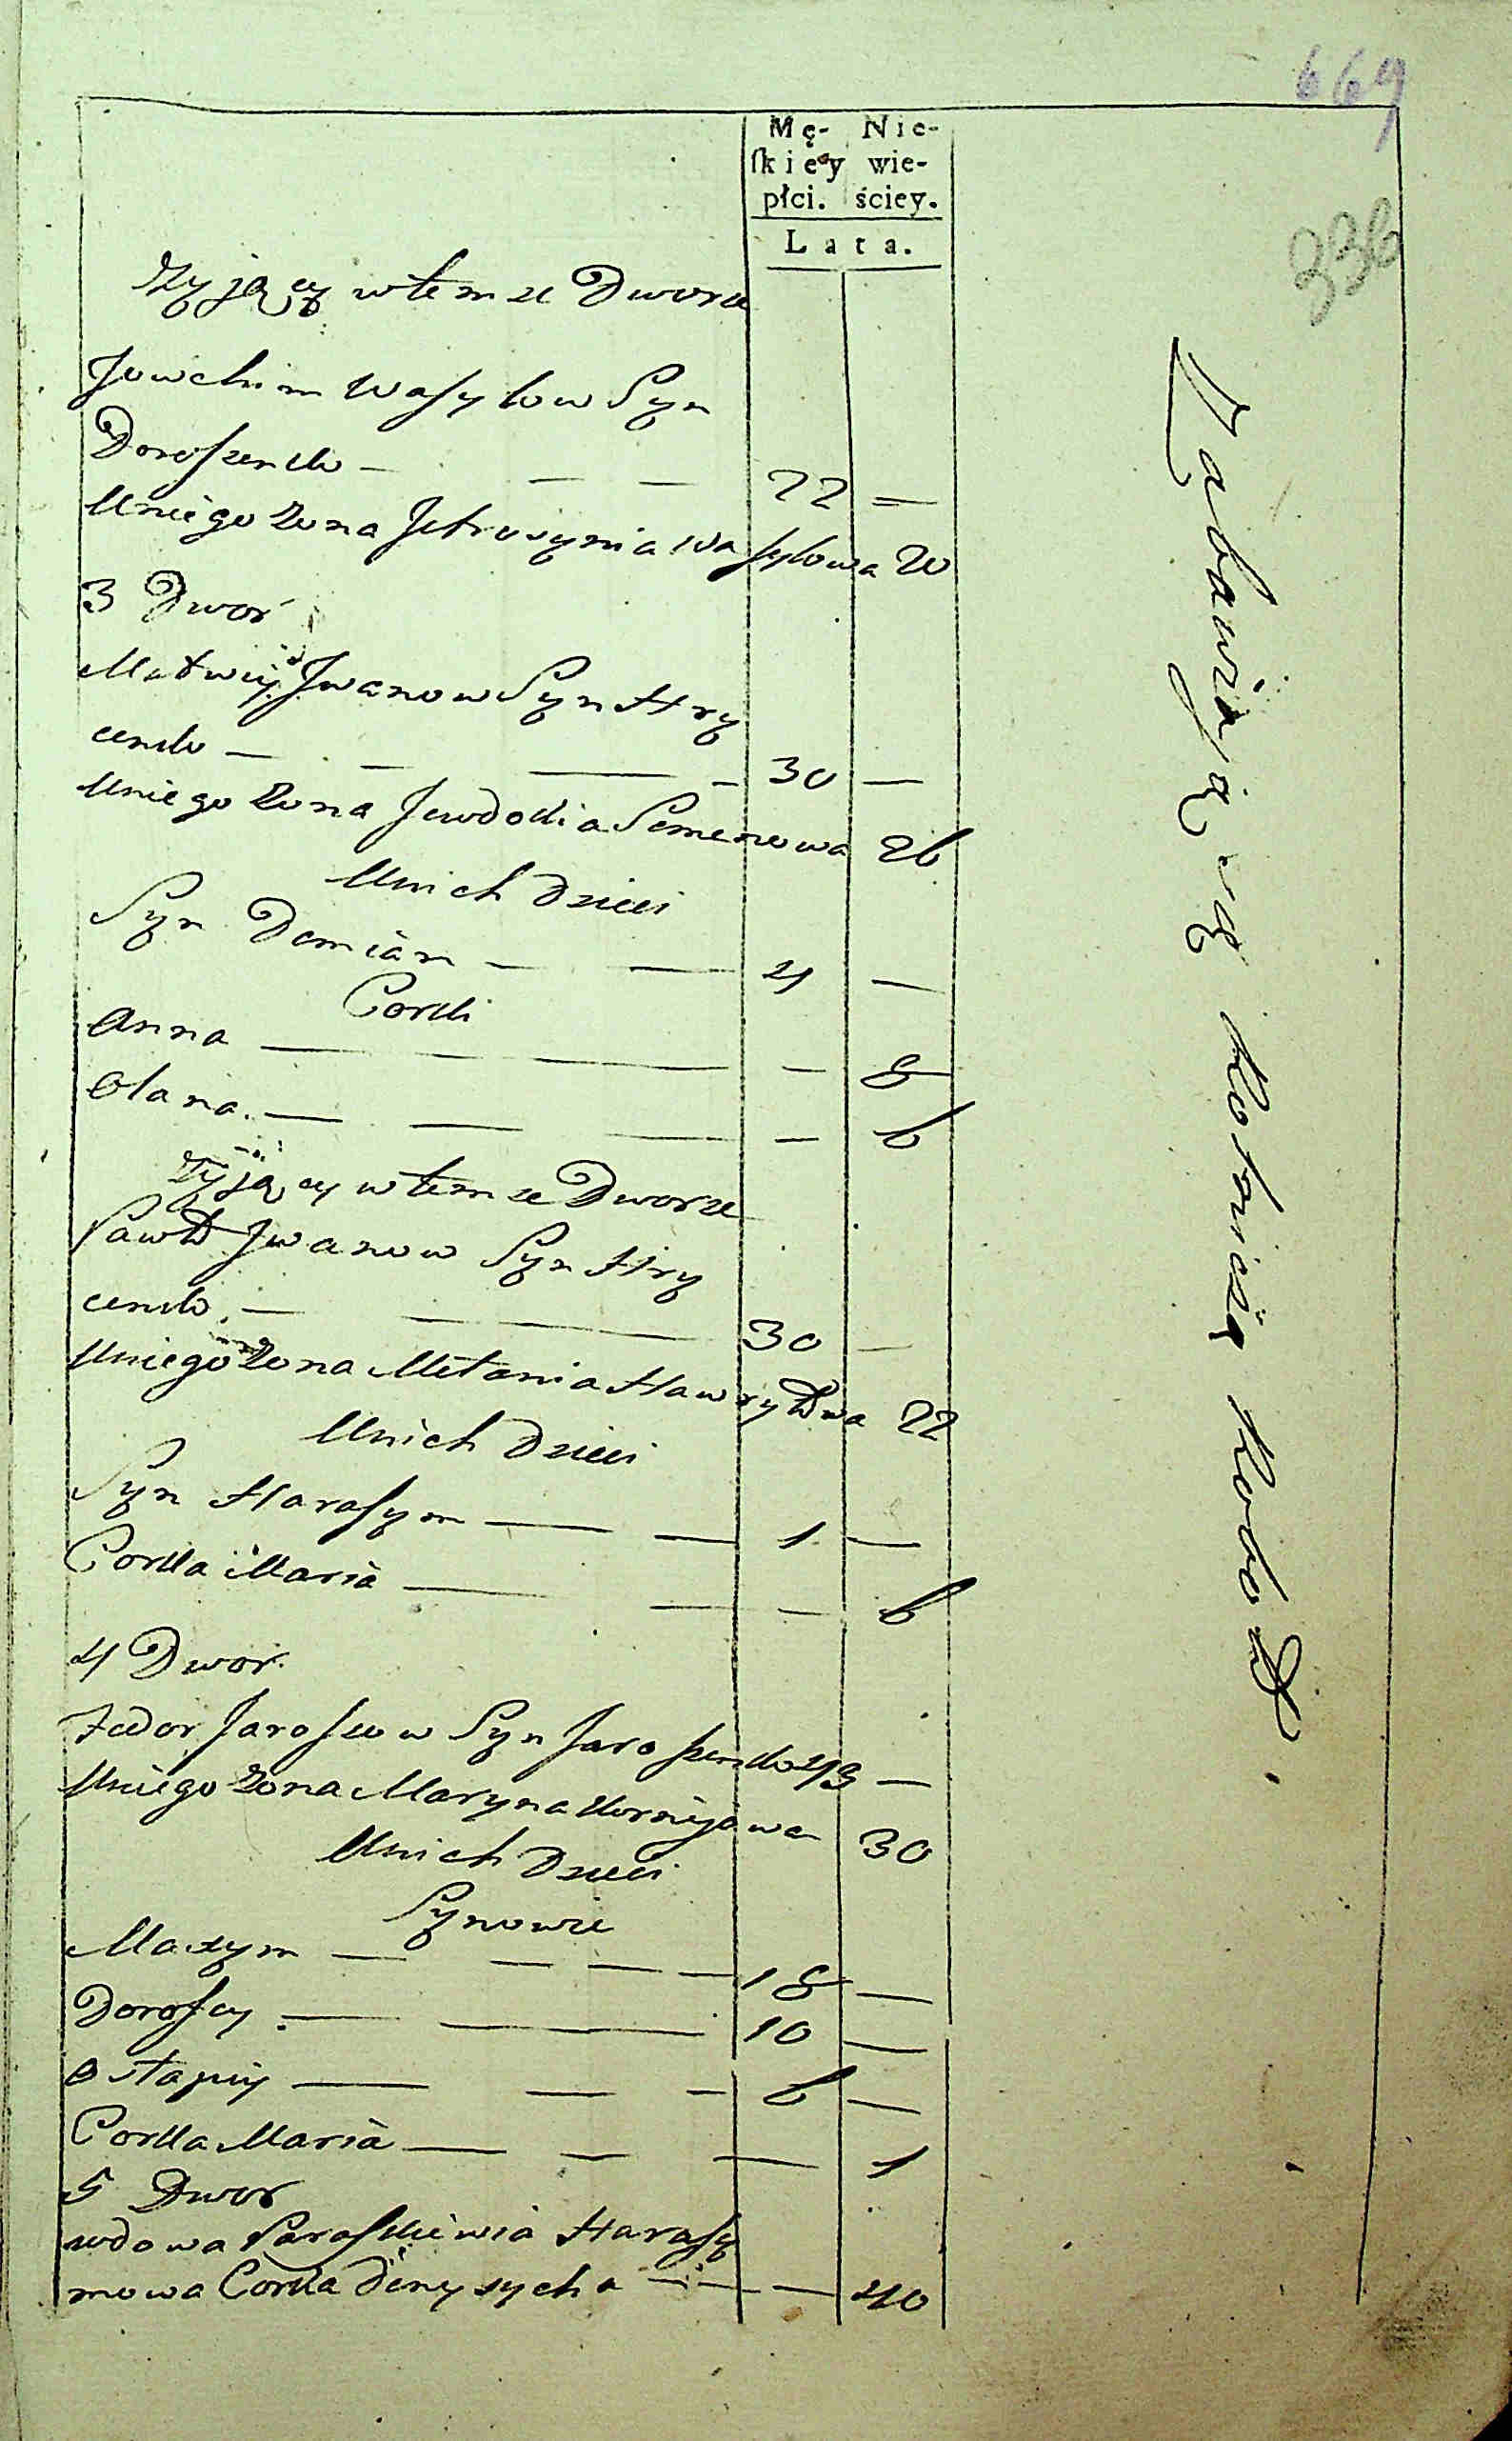 669
336
Mę- Nie-
skiey wie-
płci. ściey.
Lata.
Zyjący wtemze Dworze
Jowchim Wasylow Syn
Doroszenko — — — 22 =
Uniego Zona Jewrosynia Wasylowa 20
3 Dwor
Matwiy Jwanow Syn Hry
cenko — — — — 30 —
Uniego Zona Jewdokia Semenowa 26
Unich Dzieci
Syn Demian — — 4 —
Corki
Anna — — — — 8
Olana. — — — — 6
Zyjący wtemze Dworze
Pawło Jwanow Syn Hry
cenko. — — 30 —
Uniego Zona Melania Hawryłowa 22
Unich Dzieci
Syn Harasym — — 1 —
Corka Maria — — — 6
4 Dwor.
Fedor Jaroszow Syn Jaroszenko 43 —
Uniego Zona Maryna Kornijowa 30
Unich Dzieci
Synowie
Maxym — — — — 18 —
Dorofey. — — 10 —
Ostapiy — — — 6 —
Corka Maria — — — 1
5 Dwor
wdowa Paraskiewia Harasy
mowa Corka Denysycha — — — 40
Zabawiają się Rolniczą Robotą